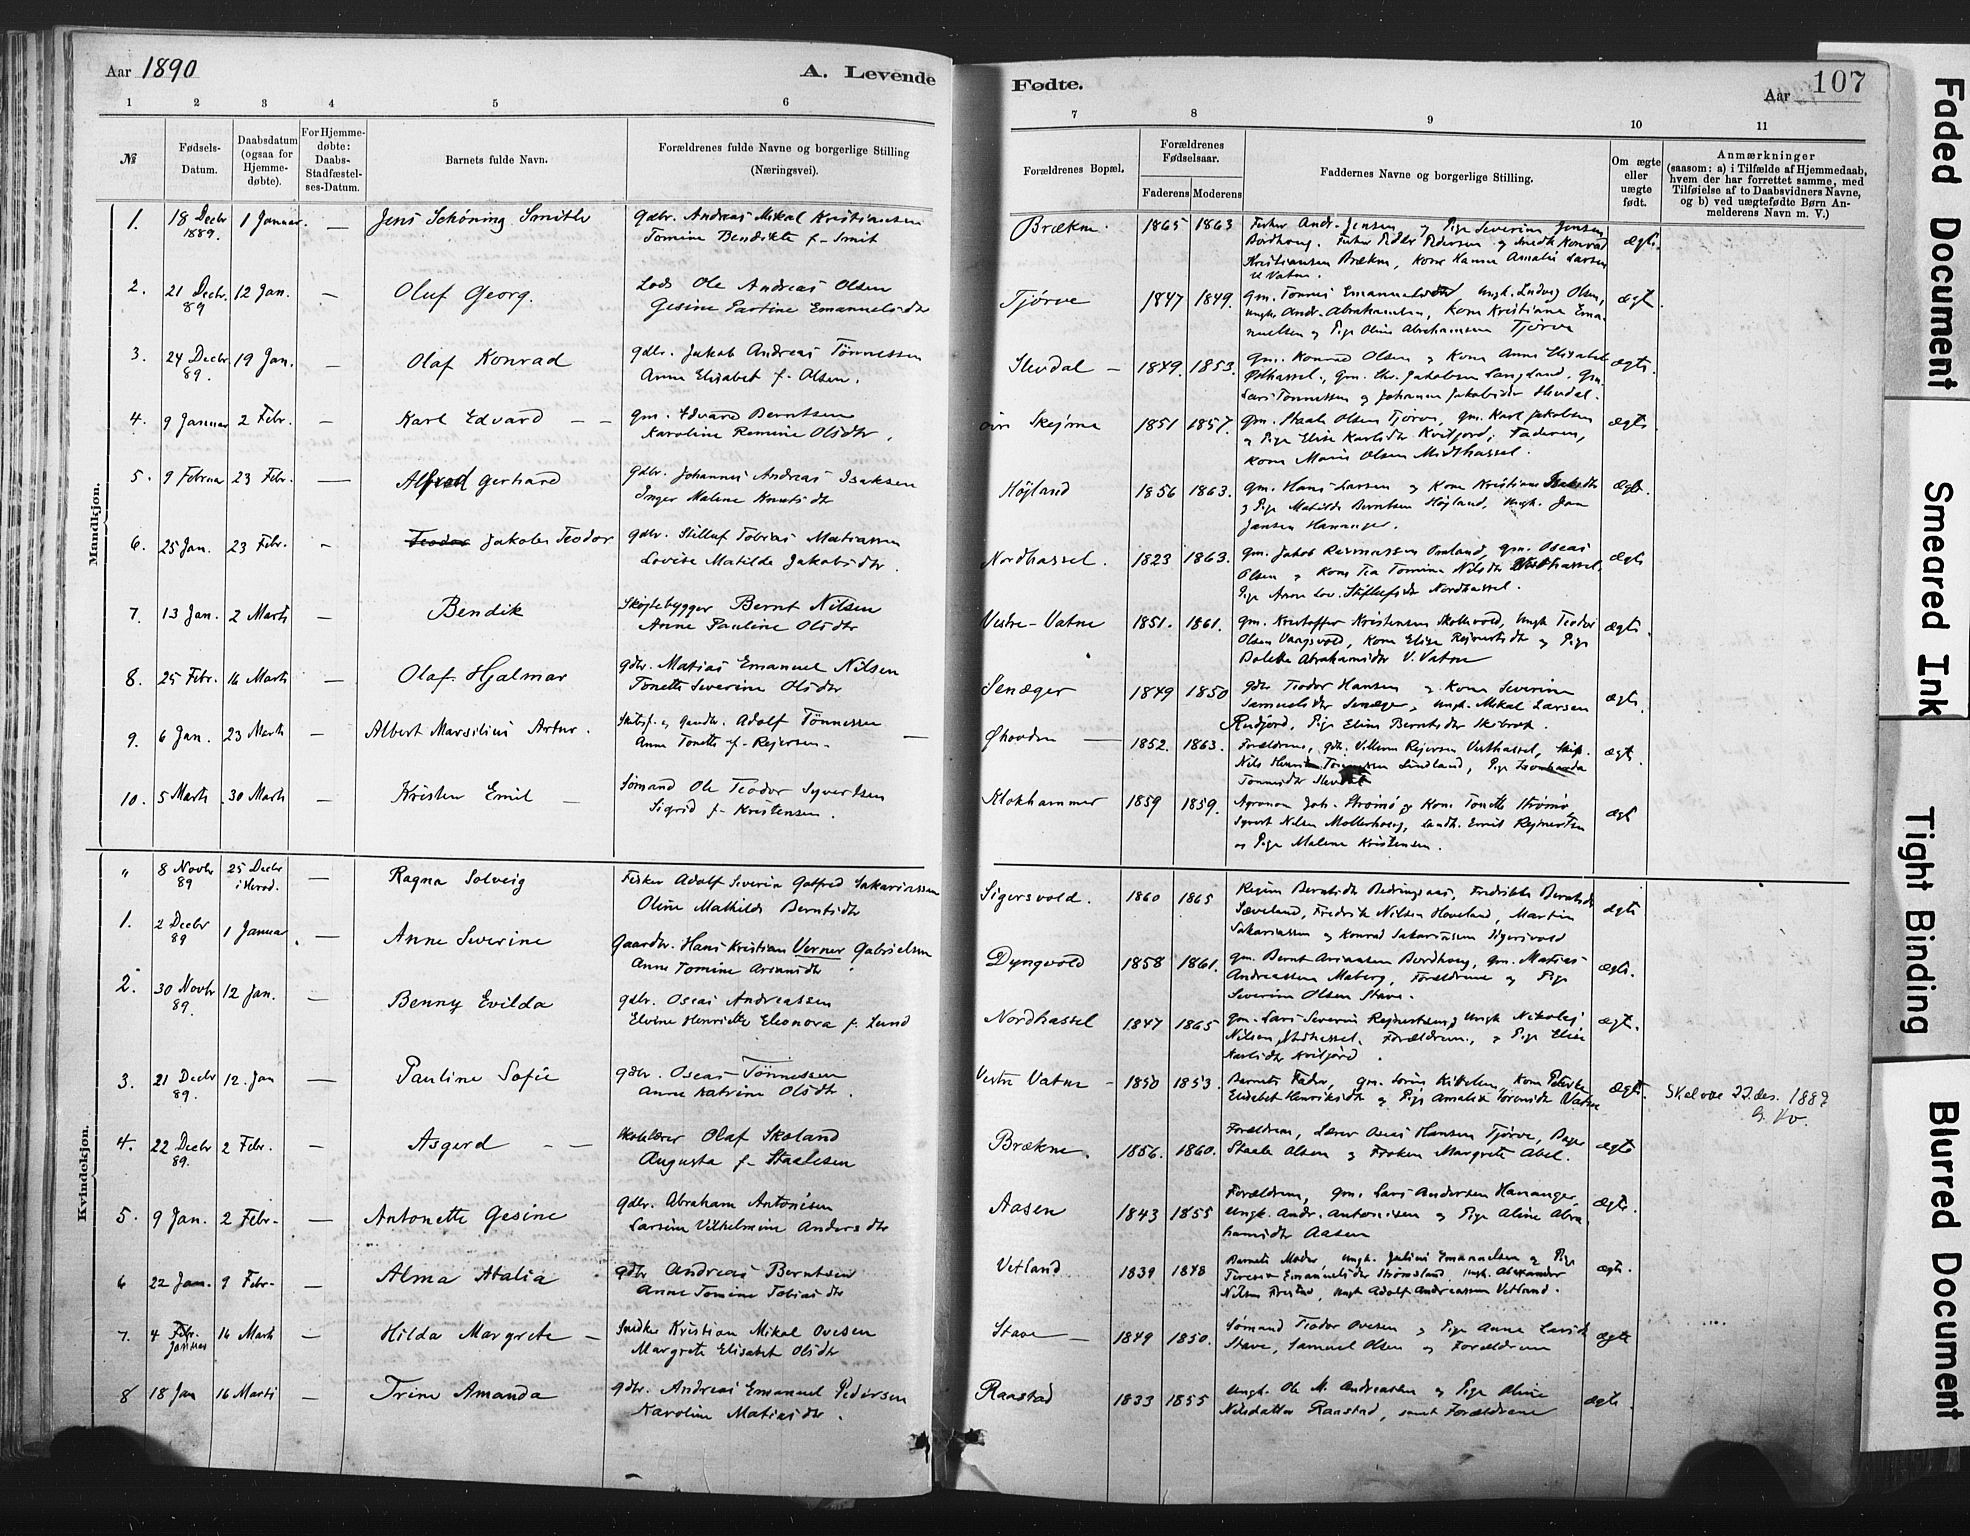 Aar 1890
A. Levende
Fødte.
Aar 107
1 2 3 4 5 6 7 8 9 10 11
№
Fødsels-
Datum.
Daabsdatum
(ogsaa for
Hjemme-
døbte).
For Hjemme-
døbte:
Daabs-
Stadfæstel-
ses-Datum.
Barnets fulde Navn.
Forældrenes fulde Navne og borgerlige Stilling
(Næringsvei).
Forældrenes Bopæl.
Forældrenes
Fødselsaar.
Faderens Moderens
Faddernes Navne og borgerlige Stilling.
Om ægte
eller
uægte
født.
Anmærkninger
(saasom: a) i Tilfælde af Hjemmedaab,
hvem der har forrettet samme, med
Tilføielse af to Daabsvidners Navne,
og b) ved uægtefødte Børn An-
melderens Navn m. V.)
Mandkjøn.
1. 18 Decbr 1889. 1 Januar. — Jens Schöning Smith
gdbr. Andreas Mikal Kristiansen
Tomine Bendikte f. Smit
Brækne. 1865 1863
Andr. Jensen og Pige Severine Jensen
Bordhoug. Peder Pedersen og Konrad
Kristiansen Brækne, Kone Hanne Amalie Larsen
V Vatne.
ægte.
2. 21 Decbr. 89 12 Jan. — Oluf Georg.
Lods Ole Andreas Olsen
Gesine Emanuelsdtr
Tjörve 1847 1849.
gm. Tönnes ungk. Ludvig Olsen,
ungk. Andr. Abrahamsen, Kone Kristiane Ema-
nuelsen og Pige Oline Abrahamsen Tjörve
ægte.
3. 24 Decbr 89. 19 Jan. — Olaf Konrad
gdbr. Jakob Andreas Tönnessen
Anne Elisabet f. Olsen.
1849. 1853.
gm. Konrad Olsen og Kone Anne Elisabet
gm. Jakobsen Langland. gm.
Lars Tönnessen og Johanne Jakobsdtr
ægte.
4. 9 Januar 2 Febr. — Karl Edvard — —
gm. Edvard Berntsen
Karoline Olsdtr.
Skejrne 1851 1857.
gm. Staale Olsen Tjörve, gm. Karl Jakobsen
og Pige Elise Karlsdtr Kvitjord, Faderen,
Kone Marie Olsen Midthassel.
ægte
5. 9 Februa 23 Febr. — Alfred Gerhard
gdbr. Johannes Andreas Isaksen
Inger Malene Knutsdtr
Højland 1856 1863.
gm. Hans Larsen og Kone Kristiane
og Pige Matilde Berntsen Højland, ungk. Jan
Jansen Hananger.
ægte.
6. 25 Jan. 23 Febr. — Teodor Jakob Teodor
gdbr. Stilluf Tobias Matiassen
Lovise Matilde Jakobsdtr.
Nordhassel. 1823 1863.
gm. Jakob Rasmussen Omland, gm. Oseas
Olsen og Kone Tea Tomine Nilsdtr
Pige Anne Lov. Nordhassel.
ægte
7. 13 Jan. 2 Marts — Bendik
Skøjtebygger Bernt Nilsen
Anne Pauline Olsdtr
Vestre-Vatne 1851. 1861.
gm. Kristoffer Kristensen ungk. Teodor
Olsen Kone Elise Rejnertsdtr og Pige
Bolette Abrahamsdtr V. Vatne
ægte.
8. 25 Febr. 16 Marts — Olaf Hjalmar
gdbr. Matias Emanuel Nilsen
Tonette Severine Olsdtr
Senæger 1849 1850
gdbr Teodor Hansen og Kone Severine
Samuelsdtr Senæger, ungk. Mikal Larsen
Rudjord, Pige Eline Berntsdtr
ægte.
9. 6 Jan. 23 Marts — Albert Marsilius Artur.
Adolf Tönnessen
Anne Tonette f. Rejersen. —
1852. 1863.
Forældrene, gdbr. Vilhem Rejersen Vesthassel,
Nils Lindland, Pige
ægte.
10. 5 Marts 30 Marts — Kristen Emil —
Sömand Ole Teodor Syvertsen
Sigrid f. Kristensen.
Klokhammer 1859 1859.
Agronom Joh. Strömö og Kone Tonette Strömö,
Syvert Nilsen Emil Rejnertsen
og Pige Malene Kristensen.
ægte
Kvindekjøn.
" 8 Novbr 89 25 Decbr — Ragna Solveig
Fisker Adolf Severin Gotfred Sakariassen
Oline Mathilde Berntsdtr
Sigersvold. 1860 1865
Berntsdtr Fredrikke Berntsdtr
Fredrik Nilsen Martin
Sakariassen og Konrad Sakariassen Sigersvold
ægte
1. 2 Decbr 89 1 Januar. — Anne Severine
Gaardbr. Hans Kristian Verner Gabrielsen
Anne Tomine
Dyngvold 1858 1861.
gm. Bernt Bordhoug, gm. Matias
Andreassen Maberg, Forældrene og Pige
Severine Olsen Stave.
ægte.
2. 30 Novbr 89. 12 Jan. — Benny Evilda
gdbr. Oseas Andreassen
Elvine Henriette Eleonora f. Lund
Nordhassel 1847 1865
gm. Lars Severin Rejnertsen, ungk Nikolaj
Nilsen, Forældrene, og Pige Elise
Karlsdtr Kvitjord.
ægte.
3. 21 Decbr 89. 12. Jan — Pauline Sofie
gdbr. Oseas Tönnessen
Anne Katrine Olsdtr.
Vestre Vatne — 1850 1853.
Barnets Fader, gm. Kone
Elisabet Henriksdtr og Pige Amalie Vatne
ægte.
Skal være 22. des. 1889
4. 22 Decbr 89. 2 Febr. — Asgerd — —
Skolelærer Olaf Skoland
Augusta f. Staalesen
Brækne. 1856. 1860.
Forældrene, Lærer Oseas Hansen Tjörve,
Staale Olsen og Fröken Margrete Abel.
ægte
5. 9 Jan. 2 Febr. — Antonette Gesine
gdbr. Abraham Antonisen
Larsine Vilhelmine Andersdtr
Aasen 1843 1855
Forældrene, gm. Lars Andersen Hananger,
ungk. Andr. Antonisen og Pige Aline Abra-
hamsdtr Aasen
ægte.
6 22 Jan. 9 Febr. — Alma Atalia
gdbr Andreas Berntsen
Anne Tomine Tobiasdtr
Vetland 1839 1848
Barnets Moder ungk. Julius Emanuelsen og Pige
Emanuelsdtr Strömsland, ungk. Alexander
Nilsen ungk Adolf Andreassen Vetland.
ægte.
7. 4 Febr. Januar 16 Marts — Hilda Margrete —
Snedker Kristian Mikal Ovesen
Margrete Elisabet Olsdtr
Stave — 1849 1850.
Sömand Teodor Ovesen og Pige Anne Larsdtr
Stave, Samuel Olsen og Forældrene
ægte
8 18 Jan 16 Marts — Trine Amanda
gdbr. Andreas Emanuel Pedersen
Karoline Matiasdtr.
Raastad 1833 1855
ungk. Ole M. Andreassen og Pige Aline
Nilsdatter Raastad, samt Forældrene
ægte.
Faded Document
Smeared Ink
Tight Binding
Blurred Document